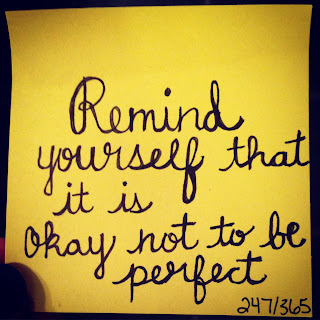 Remind
yourself that
it is
okay not to be
perfect
247/365